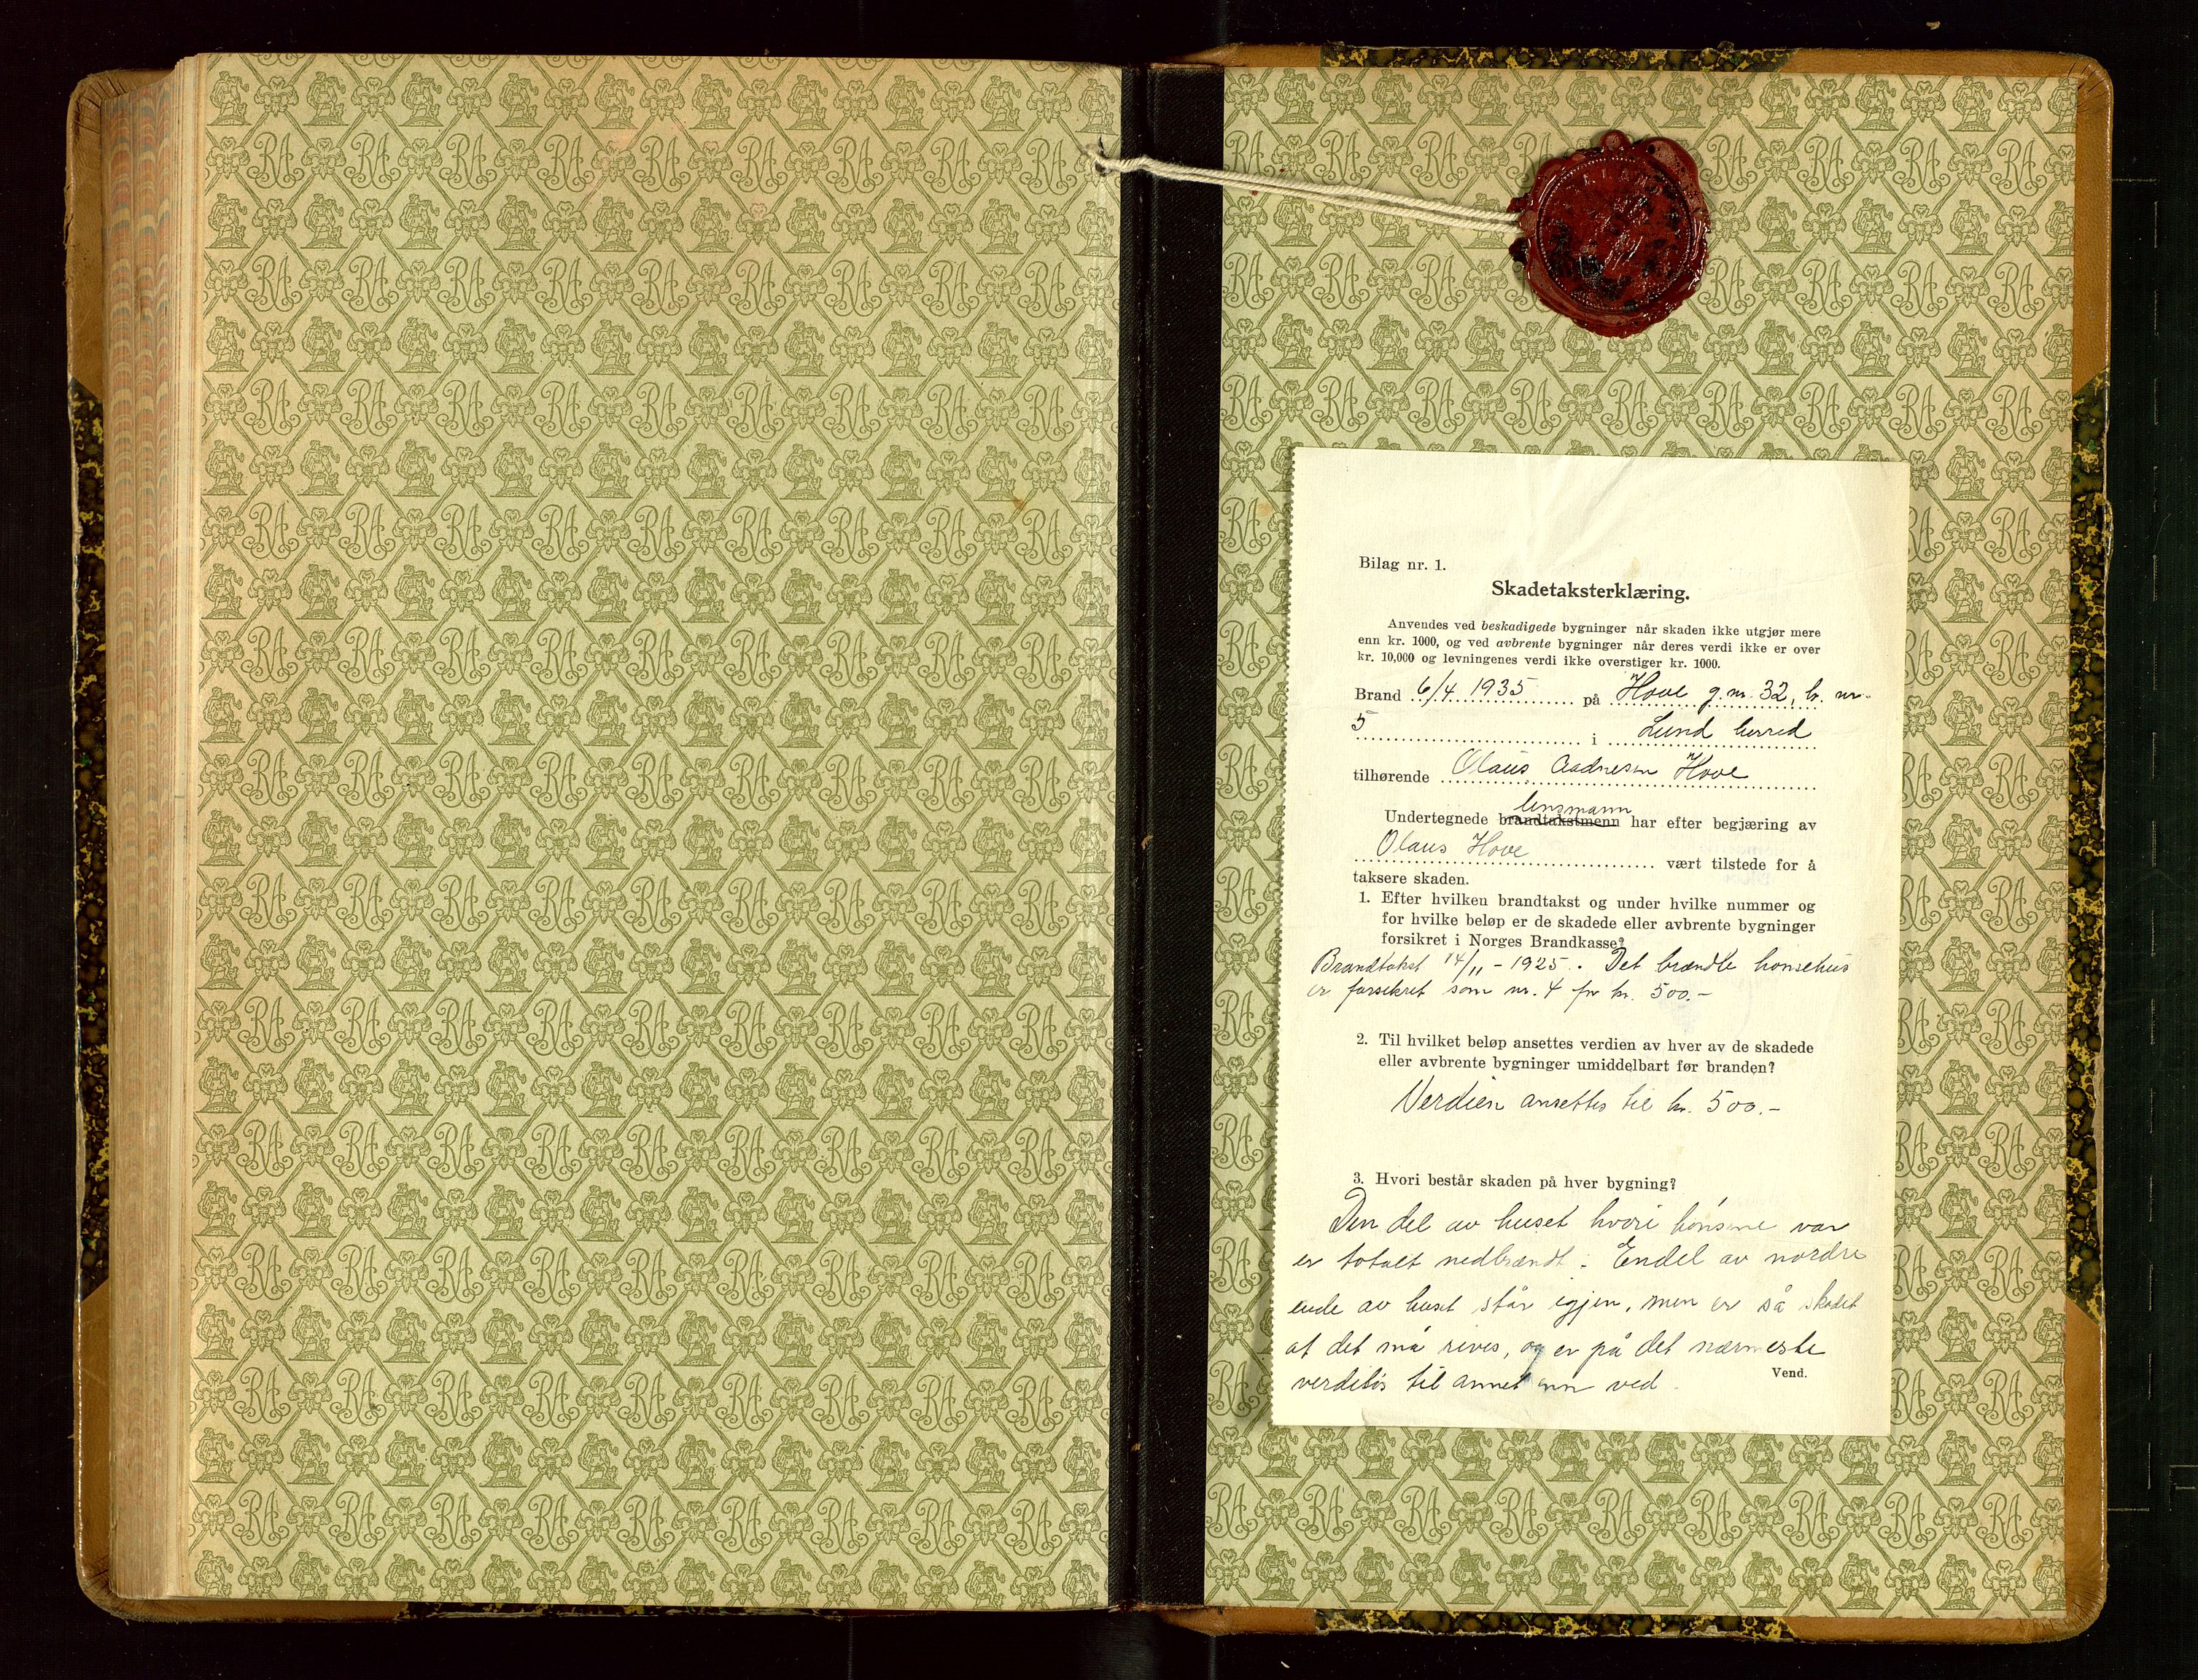 Bilag nr. 1.
Skadetaksterklæring.
Anvendes ved beskadigede bygninger når skaden ikke utgjør mere
enn kr. 1000, og ved avbrente bygninger når deres verdi ikke er over
kr. 10,000 og levningenes verdi ikke overstiger kr. 1000.
Brand 6/4 1935 på Hove g. nr. 32, b. nr.
5 i Lund herred
tilhørende Olaus Aadnesen Hove
lensmann
Undertegnede brandtakstmenn har efter begjæring av
Olaus Hove vært tilstede for å
taksere skaden.
1. Efter hvilken brandtakst og under hvilke nummer og
for hvilke beløp er de skadede eller avbrente bygninger
forsikret i Norges Brandkasse?
Brandtakst 14/11 - 1925. Det brændte hønsehus
er forsikret som nr. 4 for kr. 500.-
2. Til hvilket beløp ansettes verdien av hver av de skadede
eller avbrente bygninger umiddelbart før branden?
Verdien ansettes til kr. 500.-
3. Hvori består skaden på hver bygning?
Den del av huset hvori hønsene var
er totalt nedbrændt. Endel av nordre
ende av huset står igjen, men er så skadet
at det må rives, og er på det nærmeste
verdiløs til annet enn ved.
Vend.